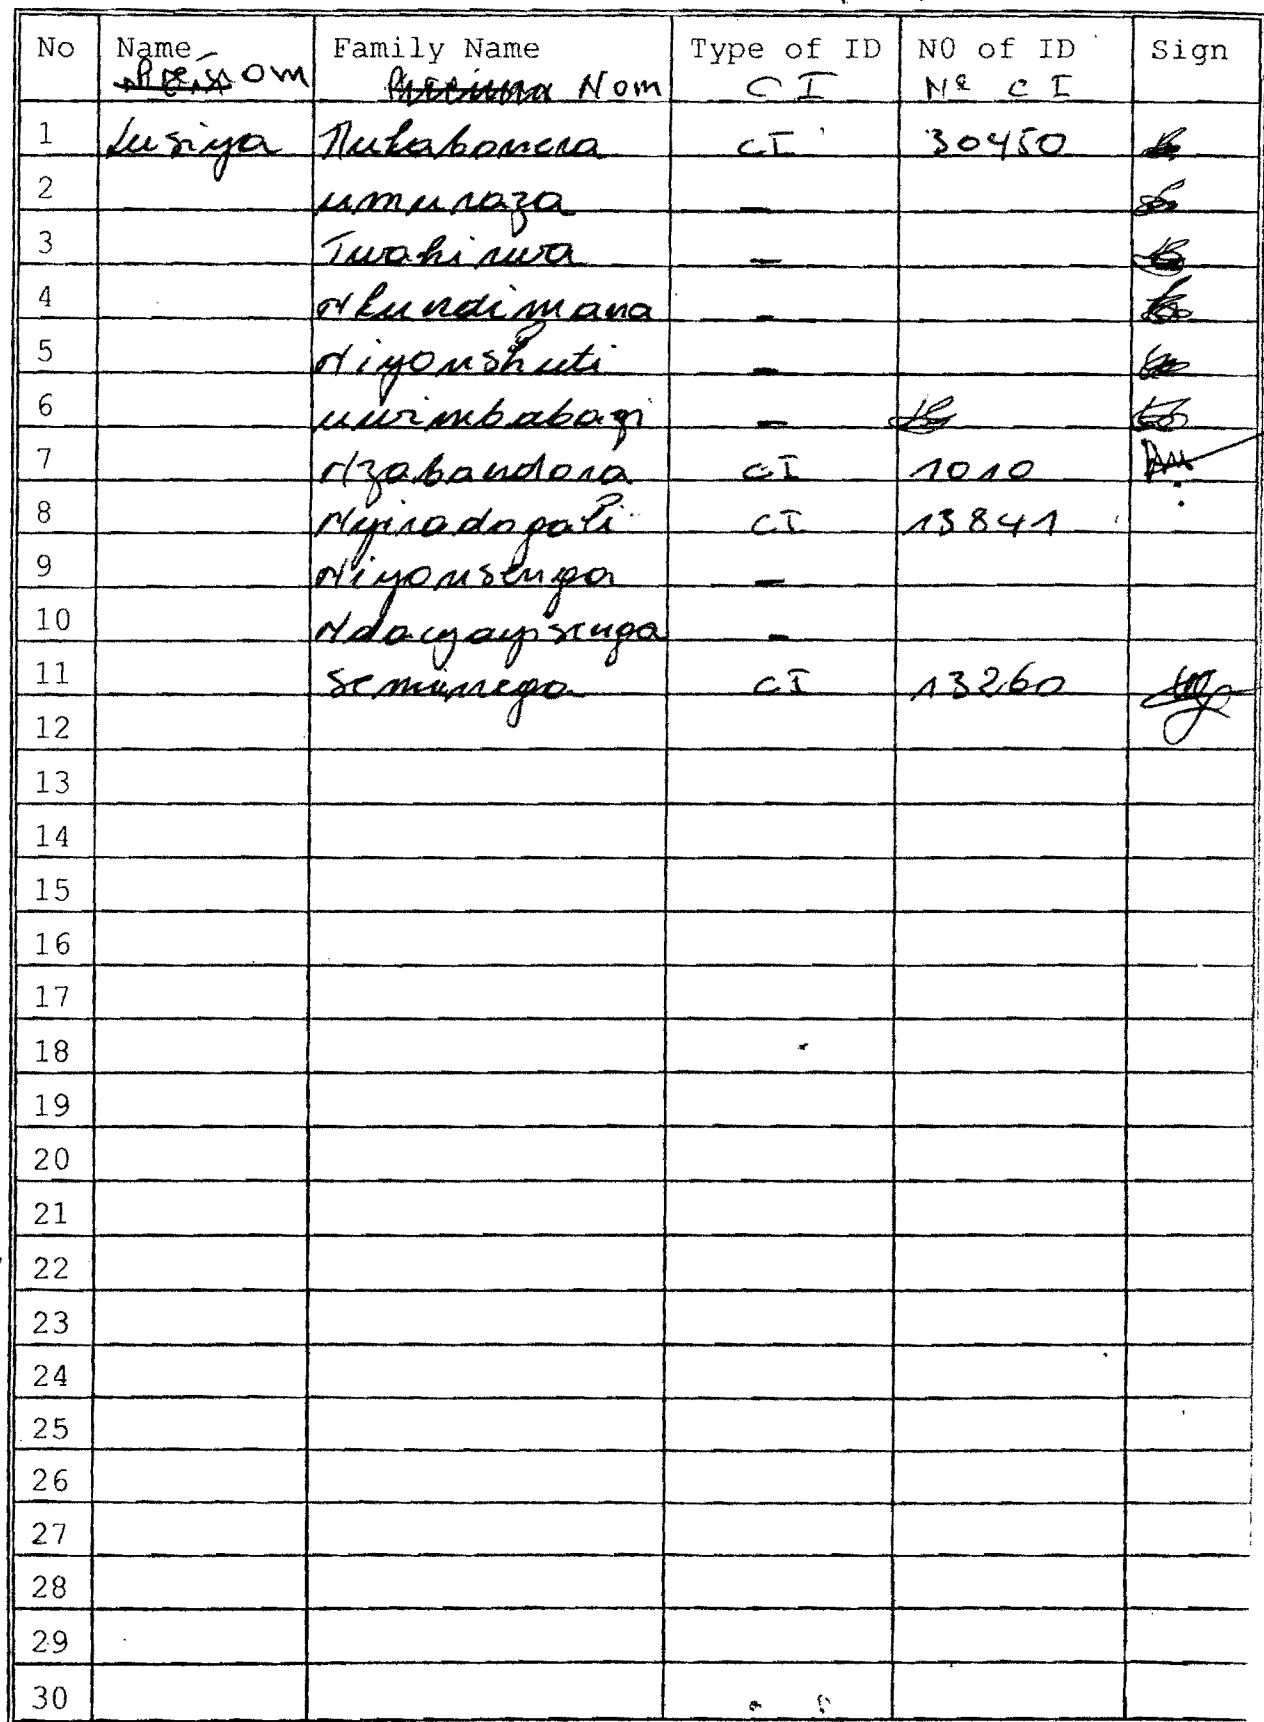 No Name Family Name Type of ID N0 of ID Sign
Prénom Nom CI Nº CI
1 Lusiya Mukabonera CI 30450
2 umuraza -
3 Twahirwa -
4 Nkundimana -
5 Niyonshuti -
6 uwimbabazi -
7 Nzabandora CI 1010
8 Nyiradogali CI 13841
9 Niyonsenga -
10 Ndacyayisenga -
11 Seminega CI 13260
12
13
14
15
16
17
18
19
20
21
22
23
24
25
26
27
28
29
30